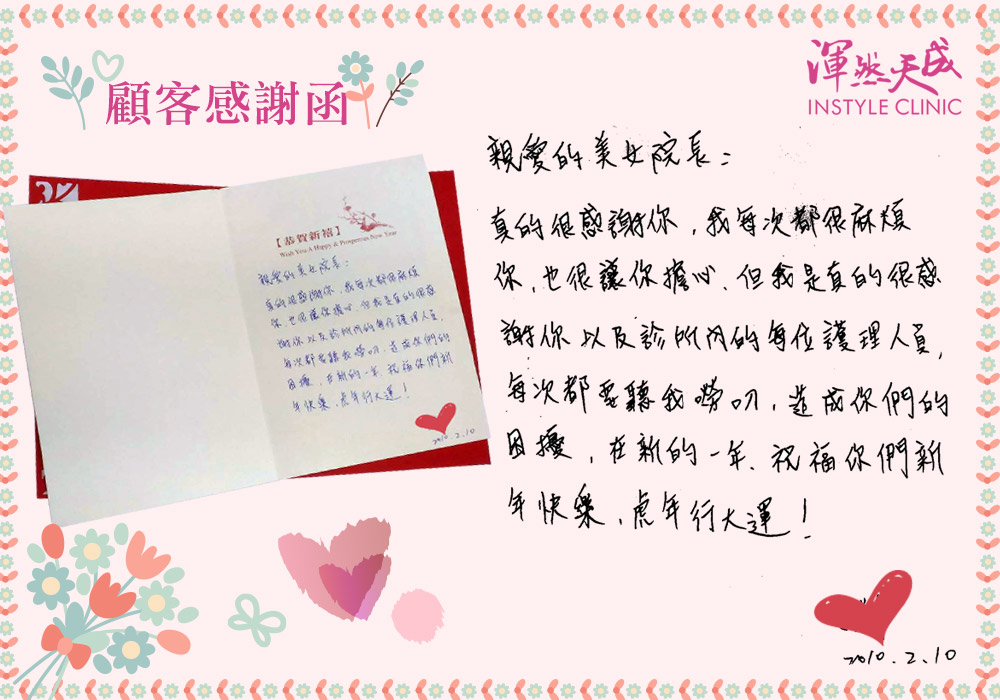 顧客感謝函
渾然天成
INSTYLE CLINIC
【恭賀新禧】
Wish You A Happy & Prosperous New Year
親愛的美女院長：
真的很感謝你，我每次都很麻煩
你，也很讓你擔心，但我是真的很感
謝你以及診所內的每位護理人員，
每次都要聽我嘮叨，造成你們的
困擾，在新的一年，祝福你們新
年快樂，虎年行大運！
2010.2.10
親愛的美女院長：
真的很感謝你，我每次都很麻煩
你，也很讓你擔心，但我是真的很感
謝你以及診所內的每位護理人員，
每次都要聽我嘮叨，造成你們的
困擾，在新的一年，祝福你們新
年快樂，虎年行大運！
2010.2.10